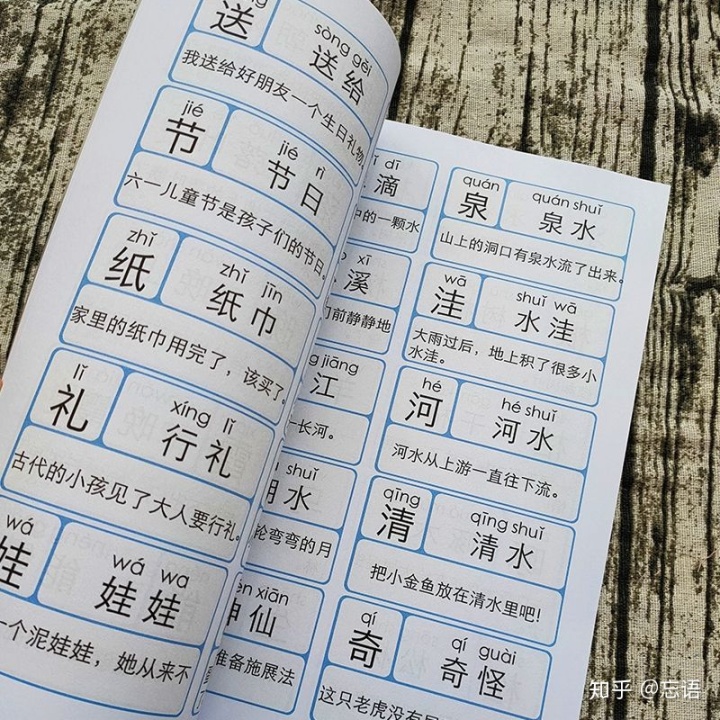 送
sòng gěi
送给
我送给好朋友一个生日礼物。
jié
节
jié rì
节日
六一儿童节是孩子们的节日。
zhǐ
纸
zhǐ jīn
纸巾
家里的纸巾用完了，该买了。
lǐ
礼
xíng lǐ
行礼
古代的小孩见了大人要行礼。
wá
娃
wá wa
娃娃
一个泥娃娃，她从来不
dī
滴
中的一颗水
xī
溪
门前静静地
jiāng
江
一长河。
shuǐ
水
轮弯弯的月
xiān
神仙
准备施展法
quán
泉
quán shuǐ
泉水
山上的洞口有泉水流了出来。
wā
洼
shuǐ wā
水洼
大雨过后，地上积了很多小
水洼。
hé
河
hé shuǐ
河水
河水从上游一直往下流。
qīng
清
qīng shuǐ
清水
把小金鱼放在清水里吧!
qí
奇
qí guài
奇怪
这只老虎没有
知乎 @忘语